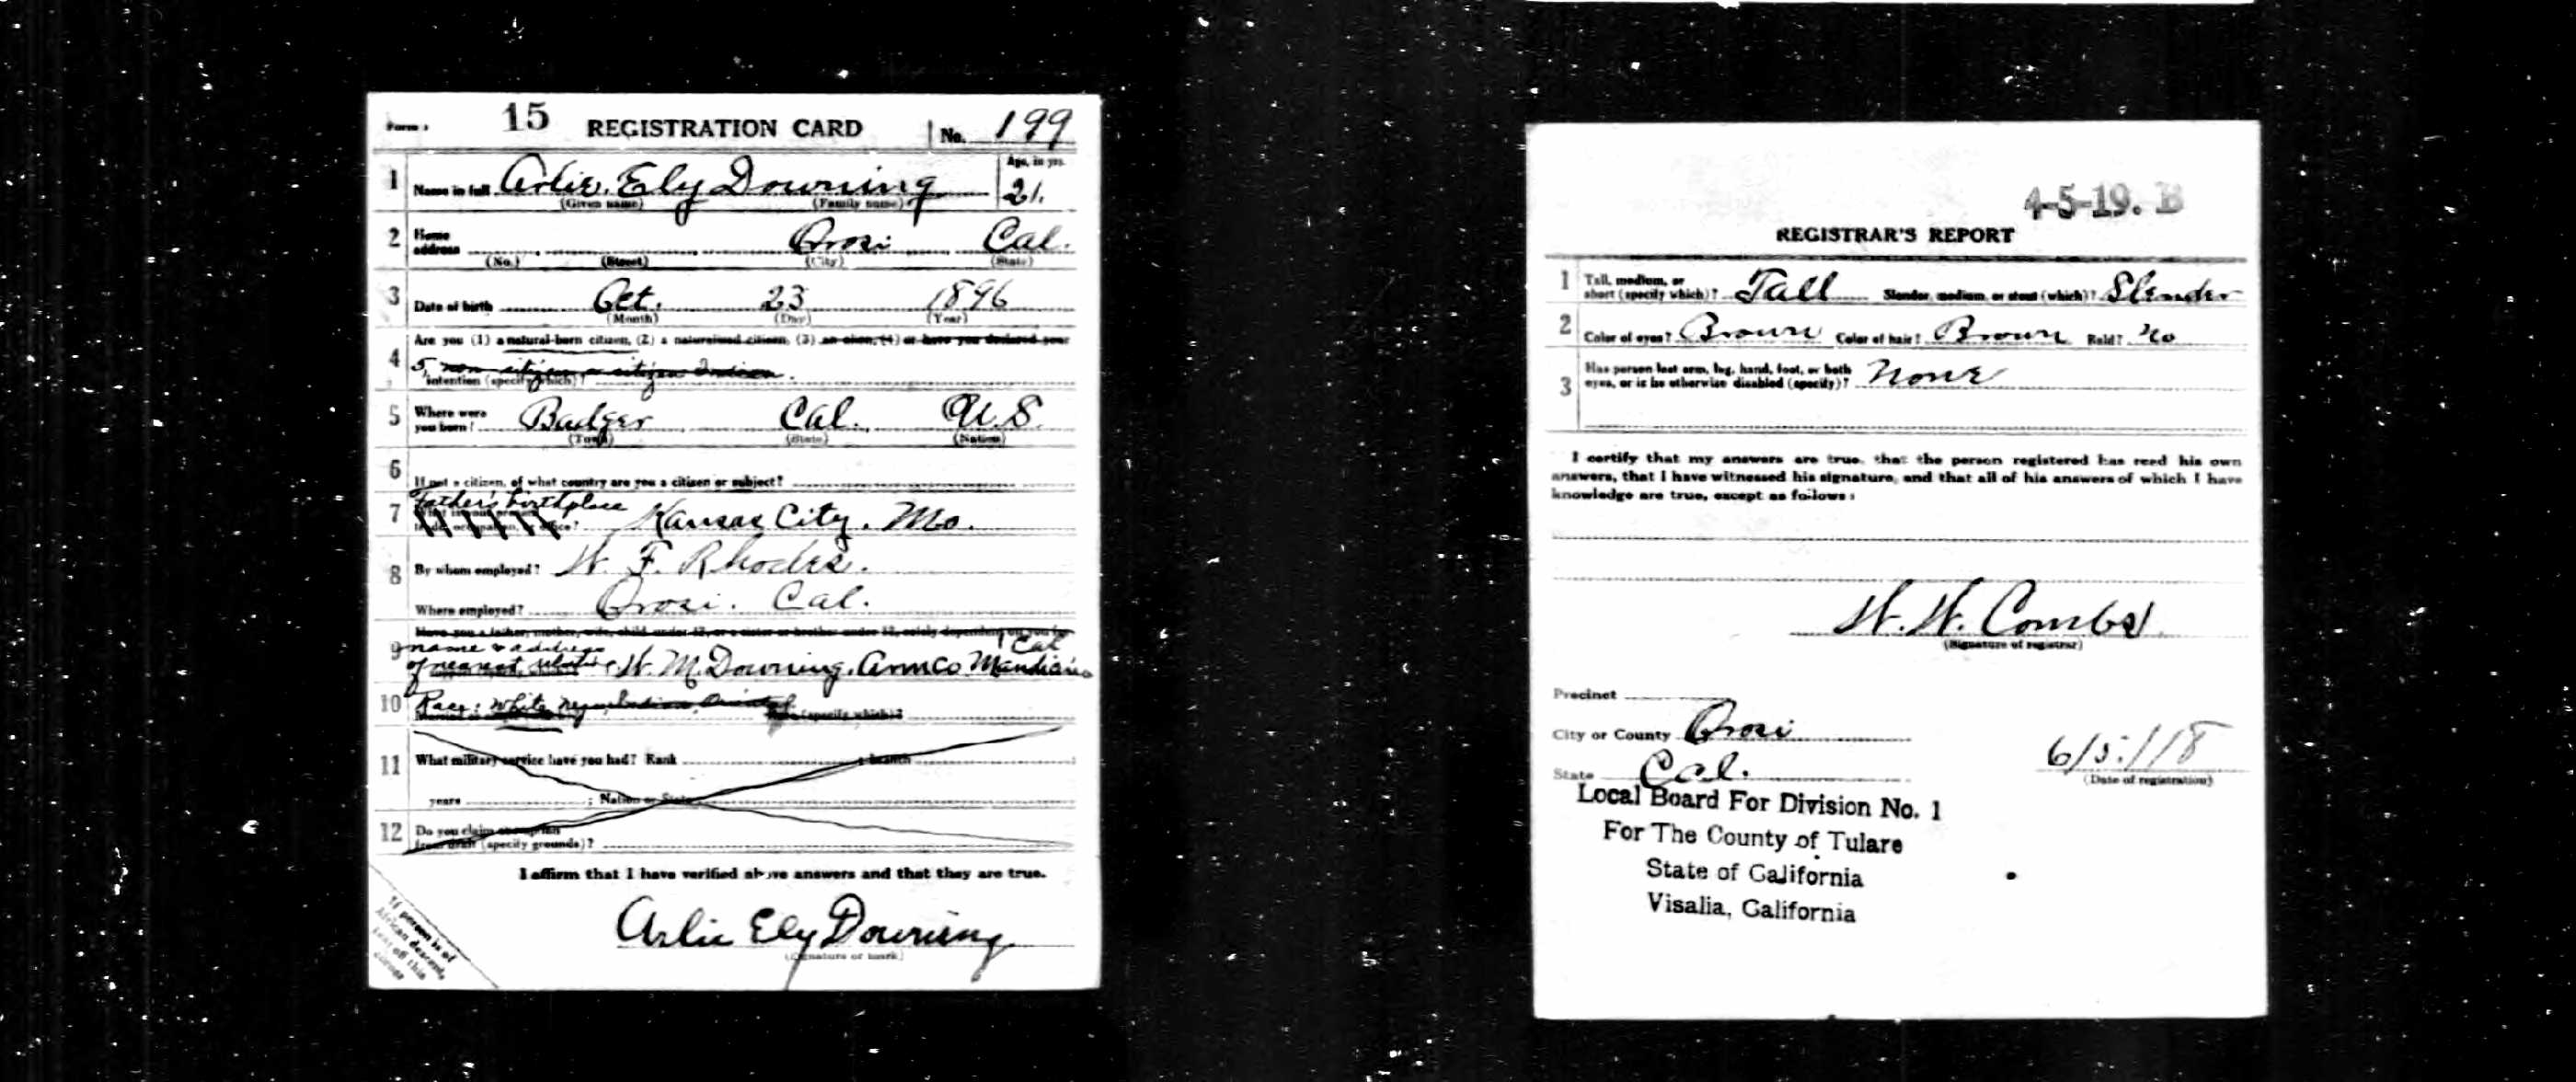 Form 1 15 REGISTRATION CARD No. 199
1 Name in full Arlie Ely Downing Age, in yrs. 21.
(Given name) (Family name)
2 Home address Orosi Cal.
(No.) (Street) (City) (State)
3 Date of birth Oct. 23 1896
(Month) (Day) (Year)
4 Are you (1) a natural-born citizen, (2) a naturalized citizen, (3) an alien, (4) or have you declared your
5, non citizen or citizen Indian.
intention (specify which)?
5 Where were you born? Badger Cal. U.S.
(Town) (State) (Nation)
6 If not a citizen, of what country are you a citizen or subject?
Father's birthplace
7 Kansas City. Mo.
8 By whom employed? W. F. Rhodes.
Where employed? Orosi. Cal.
9 Have you a father, mother, wife, child under 12, or a sister or brother under 12, solely dependent on you for
name & address Cal
of nearest relative. W. M. Downing.
10 Race: White negro Indian Oriental
(specify which)?
11 What military service have you had? Rank ; branch
years ; Nation or State
12 Do you claim exemption
from draft (specify grounds)?
I affirm that I have verified above answers and that they are true.
Arlie Ely Downing
(Signature or mark)
If person is of
African descent,
tear off this
corner
4-5-19. B
REGISTRAR'S REPORT
1 Tall, medium, or short (specify which)? Tall Slender, medium, or stout (which)? Slender
2 Color of eyes? Brown Color of hair? Brown Bald? No
3 Has person lost arm, leg, hand, foot, or both
eyes, or is he otherwise disabled (specify)? None
I certify that my answers are true, that the person registered has read his own
answers, that I have witnessed his signature, and that all of his answers of which I have
knowledge are true, except as follows:
W. W. Combs
(Signature of registrar)
Precinct
City or County Orosi
State Cal.
6/5/18
(Date of registration)
Local Board For Division No. 1
For The County of Tulare
State of California
Visalia, California